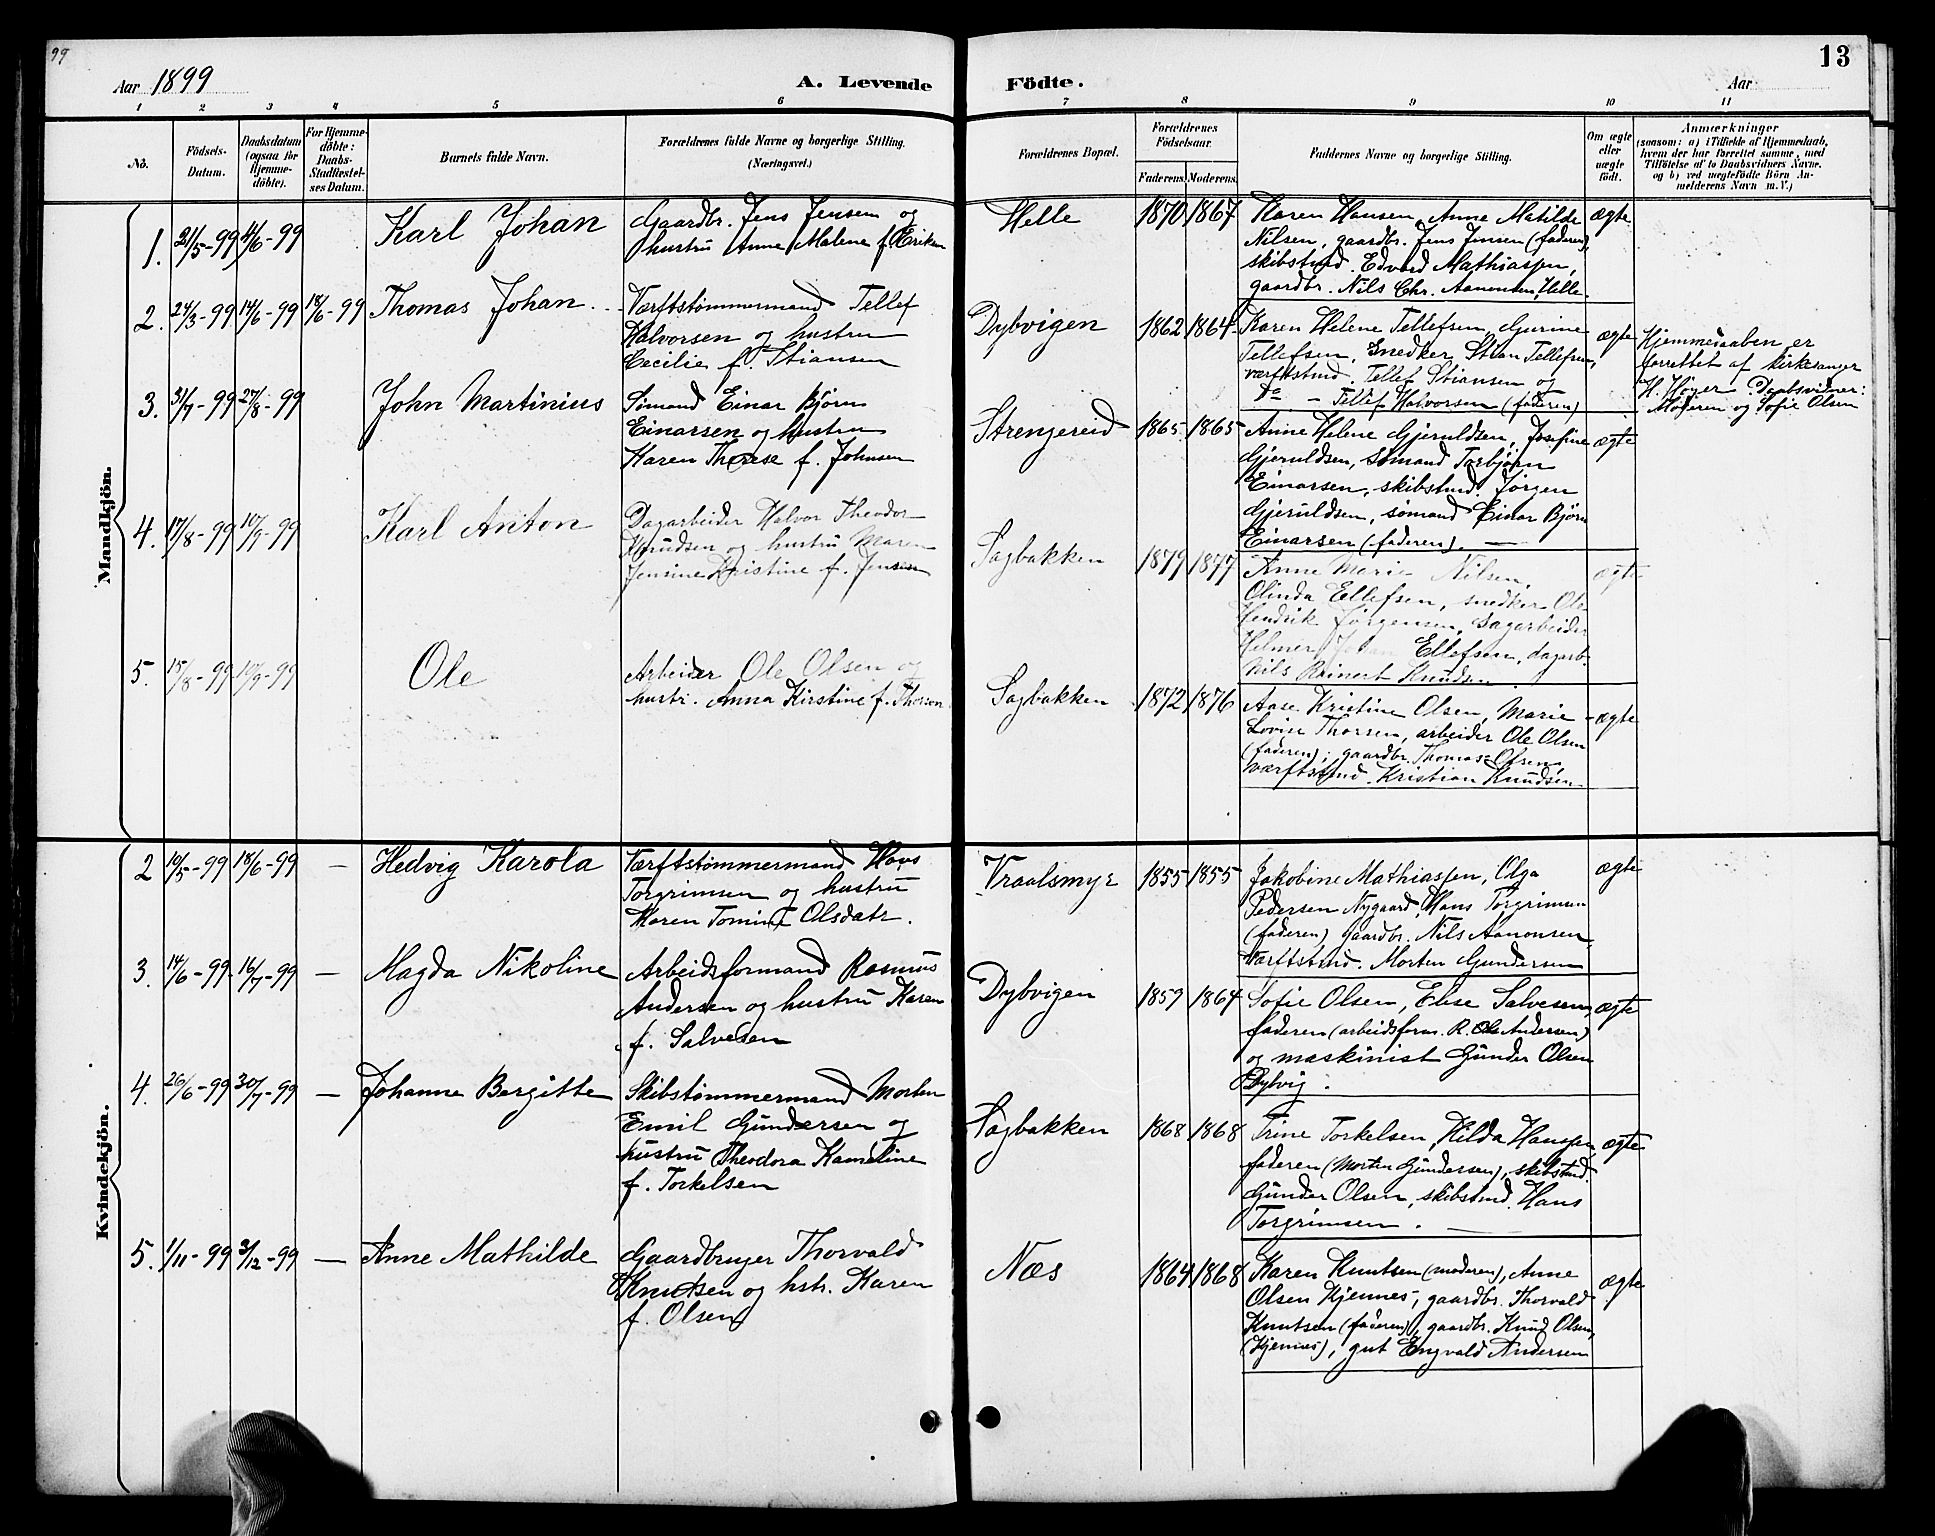 99
13
Aar 1899
A. Levende
Födte.
Aar
1 2 3 4 5 6 7 8 9 10 11
No.
Födsels-
Datum.
Daabsdatum
(ogsaa for
Hjemme-
döbte).
For Hjemme-
döbte:
Daabs-
Stadfæstel-
ses Datum.
Barnets fulde Navn.
Forældrenes fulde Navne og borgerlige Stilling.
(Næringsvei.)
Forældrenes Bopæl.
Forældrenes
Födselsaar.
Faderens. Moderens.
Faddernes Navne og borgerlige Stilling.
Om ægte
eller
uægte
födt.
Anmærkninger
(saasom: a) i Tilfælde af Hjemmedaab,
hvem der har forrettet samme, med
Tilföielse af to Daabsvidners Navne,
og b) ved uægtefödte Börn An-
melderens Navn m. V.)
Mandkjön.
1. 21/5-99 4/6-99
Karl Johan
Gaardbr. Jens Jensen og
hustru Anne Malene f. Eriksen
Helle
1870 1867
Karen Hansen, Anne Matilde
Nilsen, gaardbr. Jens Jensen (faderen),
skibstmd. Edvard Mathiassen,
gaardbr. Nils Chr. Aanonsen, Helle.
ægte
2. 24/3-99 14/6-99 18/6-99
Thomas Johan
Værftstømmermand Tellef
Halvorsen og hustru
Cecilie f. Stiansen
Dybvigen
1862 1864
Karen Helene Tellefsen, Gurine
Tellefsen, Snedker Stian Tellefsen,
værftstmd. Tellef Stiansen og
Do - Tellef Halvorsen (faderen)
ægte
Hjemmedaaben er
forrettet af kirkesanger
H. Høyer. Daabsvidner:
Moderen og Sofie Olsen
3. 31/7-99 27/8-99
John Martinius
Sømand Einar Bjørn
Einarsen og hustru
Karen Therese f. Johnsen
Strengereid
1865 1865
Anne Helene Gjeruldsen, Josefine
Gjeruldsen, sømand Torbjørn
Einarsen, skibstmd. Jørgen
Gjeruldsen, sømand Einar Bjørn
Einarsen (faderen).
ægte
4. 17/8-99 10/9-99
Karl Anton
Dagarbeider Halvor Theodor
Knudsen og hustru Maren
Jensine Kristine f. Jensen
Sagbakken
1879 1877
Anne Marie Nilsen,
Olinda Ellefsen, snedker Ole
Hendrik Jørgensen, Dagarbeider
Helmer Johan Ellefsen, dagarb.
Nils Reinert Knudsen
ægte
5. 15/8-99 10/9-99
Ole
Arbeider Ole Olsen og
hustr. Anna Kirstine f. Thorsen
Sagbakken
1872 1876
Aase Kristine Olsen, Marie
Lovise Thorsen, arbeider Ole Olsen
(faderen), gaardbr. Thomas Olsen,
værftstmd. Kristian Knudsen
ægte
Kvindekjön.
2 10/5-99 18/6-99 —
Hedvig Karola
Værftstømmermand Hans
Torgrimsen og hustru
Karen Tomine Olsdatr.
Vraalsmyr
1855 1855
Jakobine Mathiassen, Olga
Pedersen Nygaard, Hans Torgrimsen
(faderen) gaardbr. Nils Aanonsen,
Værftstmd. Morten Gundersen
ægte
3. 14/6-99 16/7-99 —
Magda Nikoline
Arbeidsformand Rasmus
Andersen og hustru Karen
f. Salvesen
Dybvigen
1859 1864
Sofie Olsen, Elise Salvesen,
faderen (arbeidsform. R. Andersen)
og maskinist Gunder Olsen
Dybvig.
ægte
4. 26/6-99 30/7-99 —
Johanne Bergitte
Skibstømmermand Morten
Emil Gundersen og
hustru Theodora Kameline
f. Torkelsen
Sagbakken
1868 1868
Trine Torkelsen, Hilda Hansen,
faderen (Morten Gundersen), skibstmd.
Gunder Olsen, skibstmd. Hans
Torgrimsen.
ægte
5. 1/11-99 3/12-99 —
Anne Mathilde
Gaardbruger Thorvald
Knutsen og hstr. Karen
f. Olsen
Næs
1864 1868
Karen Knutsen (moderen), Anne
Olsen Kjennes, gaardbr. Thorvald
Knutsen (faderen), gaardbr. Knud Olsen
(Kjennes), gut Engvald Andersen
ægte